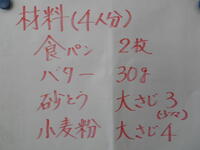 材料(4人分)
食パン 2枚
バター 30g
砂とう 大さじ3
小麦粉 大さじ4